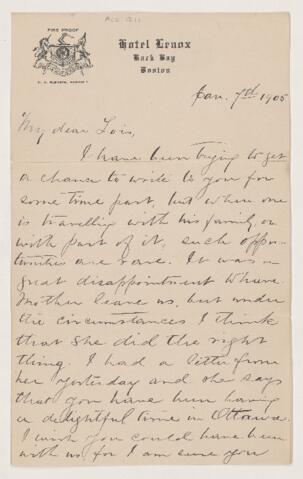 FIRE PROOF
Hotel Lenox
Back Bay
Boston
Jan. 7th 1905
My dear Lois,
I have been trying to get
a chance to write to you for
some time past, but when one
is travelling with his family or
with part of it, such oppor-
tunities are rare. It was a
great disappointment to have
Mother leave us, but under
the circumstances I think
that she did the right
thing. I had a letter from
her yesterday and she says
that you have been having
a delightful time in Ottawa.
I wish you could have been
with us for I am sure you